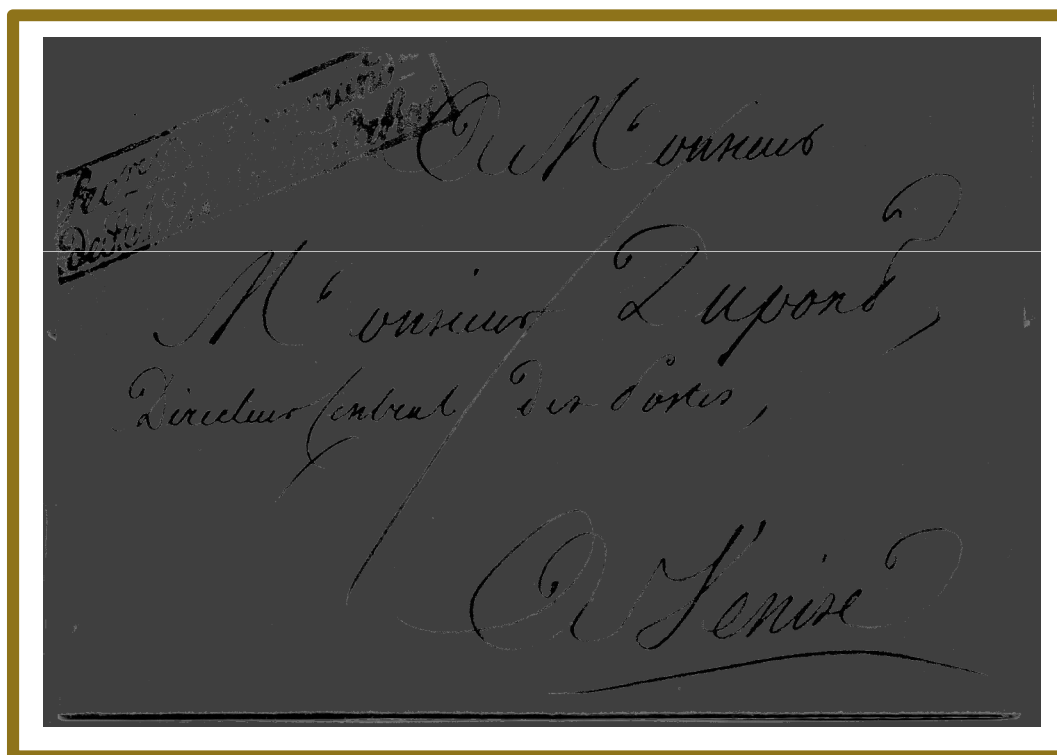 A Monsieur
Monsieur Dupond,
Directeur Central des Postes,
A Venise